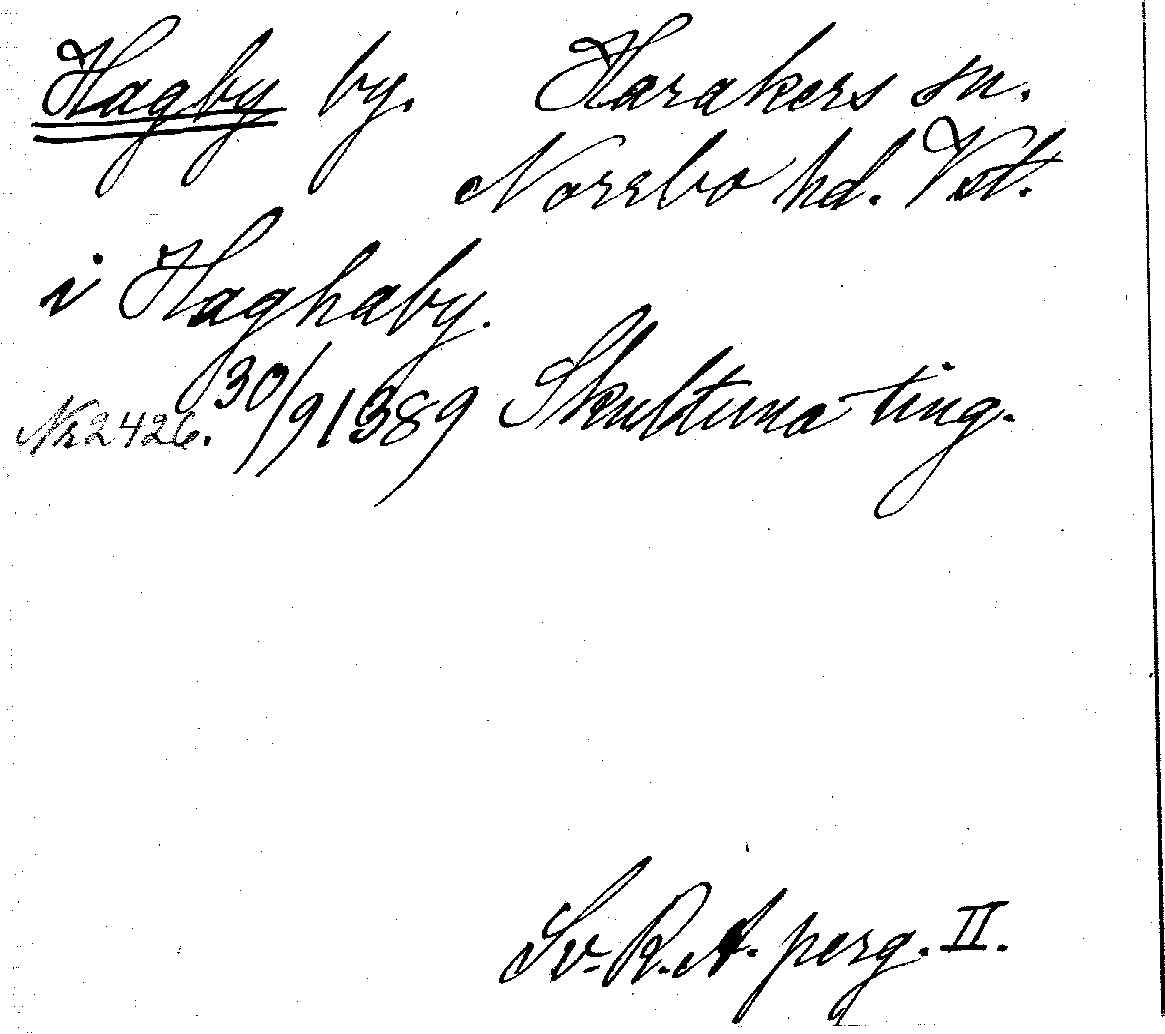 Hagby by. Harakers sn.
Norrbo hd. Vstl.
i Haghaby.
Nr 2426. 30/9 1389 Skultuna ting.
Sv. R. A. perg. II.